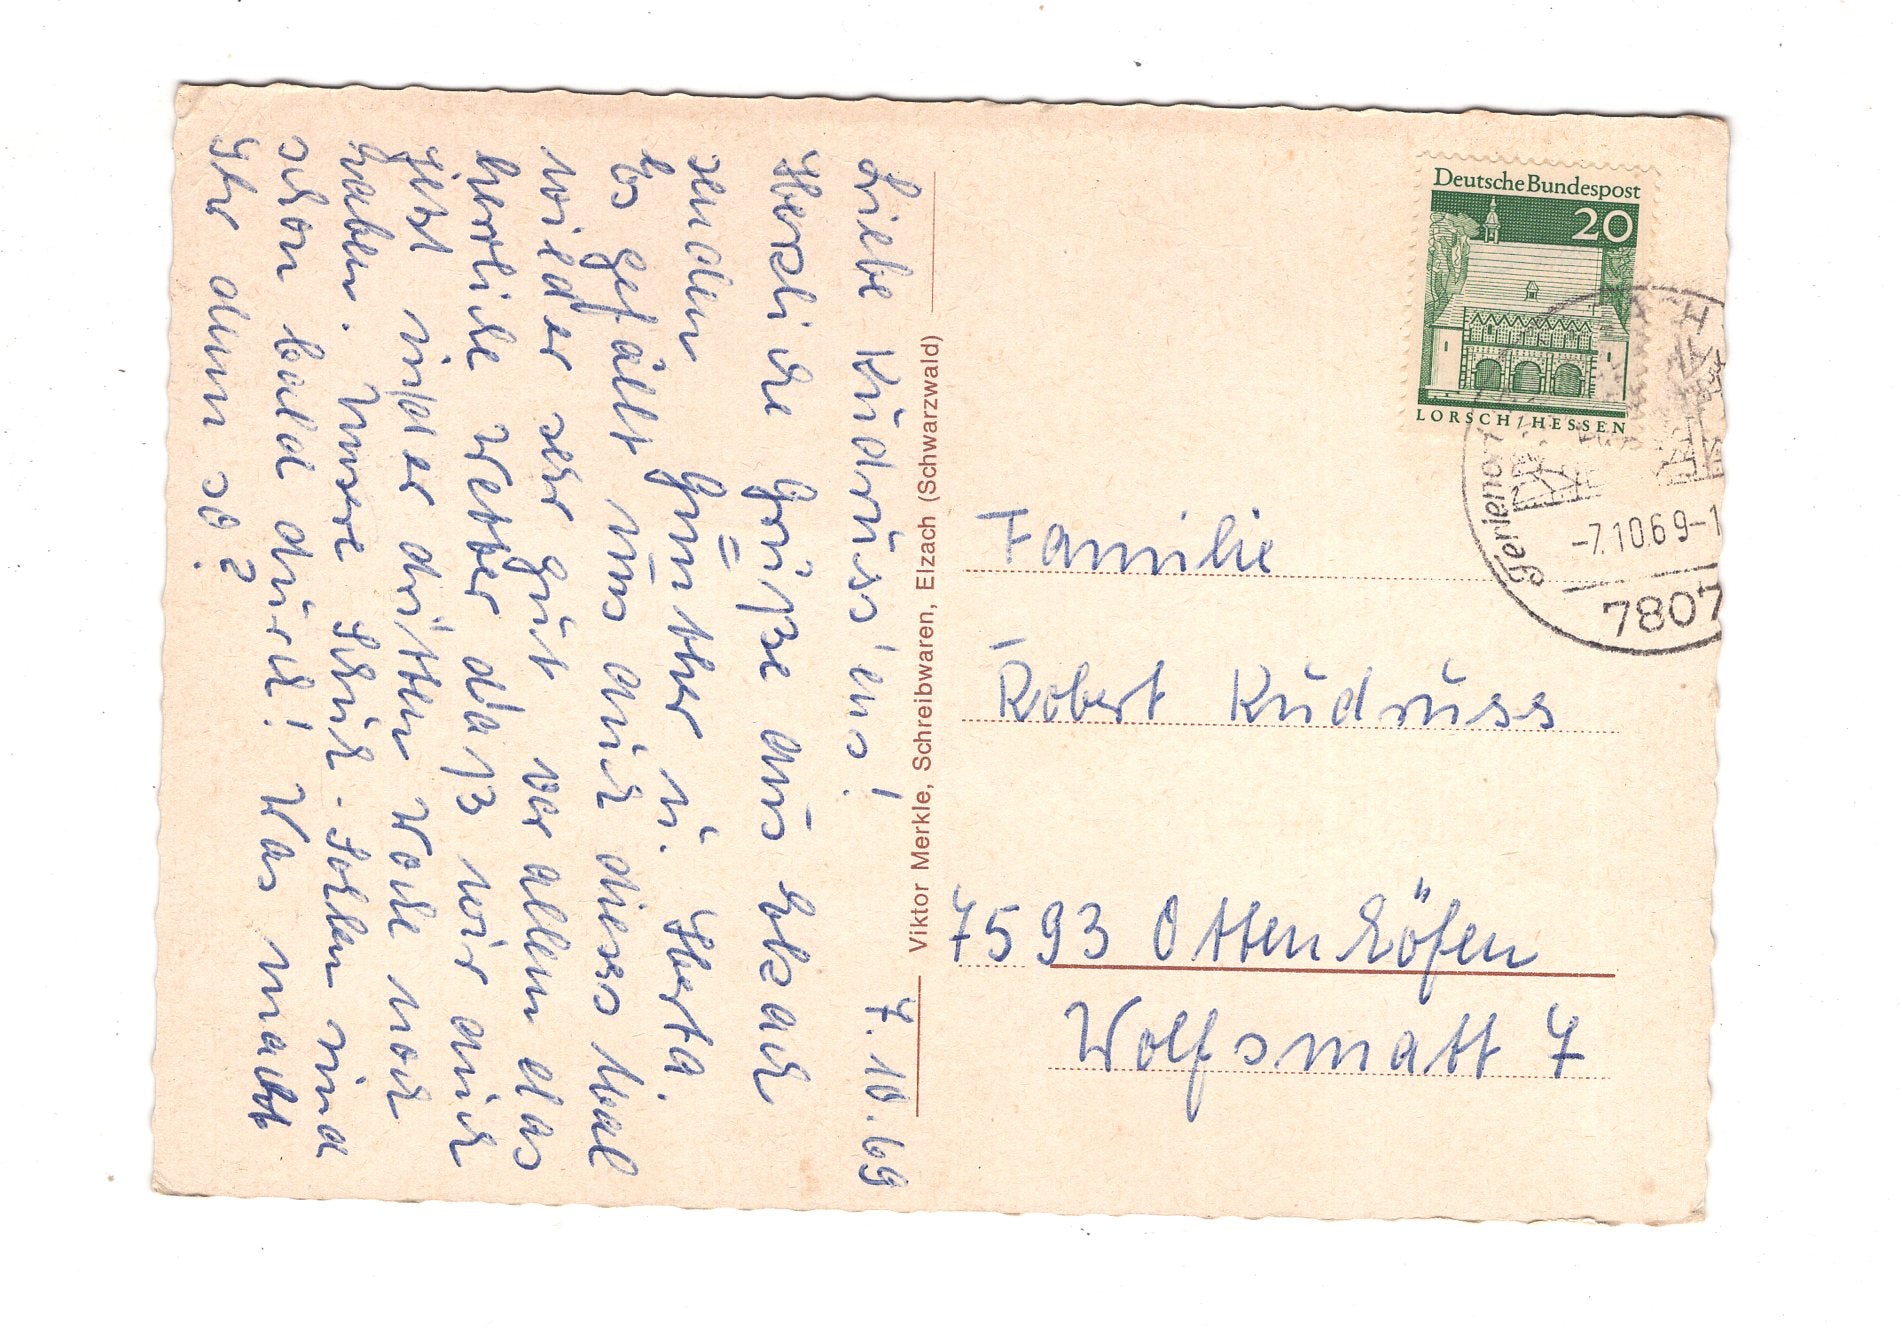 Liebe Kudruss'ens!
7.10.69
Herzliche Grüße aus Elzach
senden Günther u. Herta.
Es gefällt uns auch dieses Mal
wieder sehr gut vor allem das
herrliche Wetter daß wir auch
jetzt in der dritten Woche noch
haben. Unsere Schuh-Sohlen sind
schon bald durch! Was macht
Ihr denn so?
Viktor Merkle, Schreibwaren, Elzach (Schwarzwald)
Deutsche Bundespost
20
LORSCH/HESSEN
Ferienort
-7.10.69-1
7807
Familie
Robert Kudruss
7593 Ottenhöfen
Wolfsmatt 7